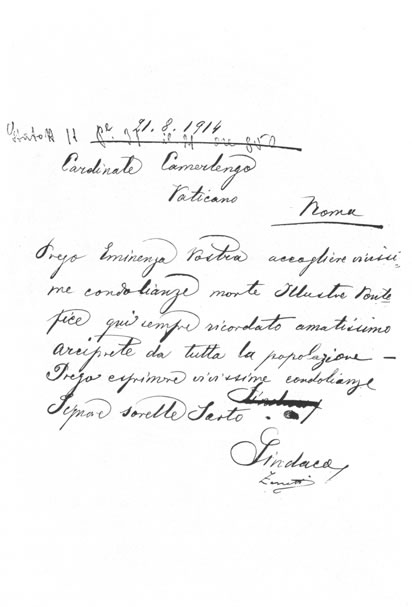 21.8.1914
Cardinale Camerlengo
Vaticano
Roma
Prego Eminenza Vostra accogliere vivissi-
me condolianze morte Illustre Ponte
fice qui sempre ricordato amatissimo
arciprete da tutta la popolazione -
Prego esprimere vivissime condolianze
Signore sorelle Sarto.
Sindaco